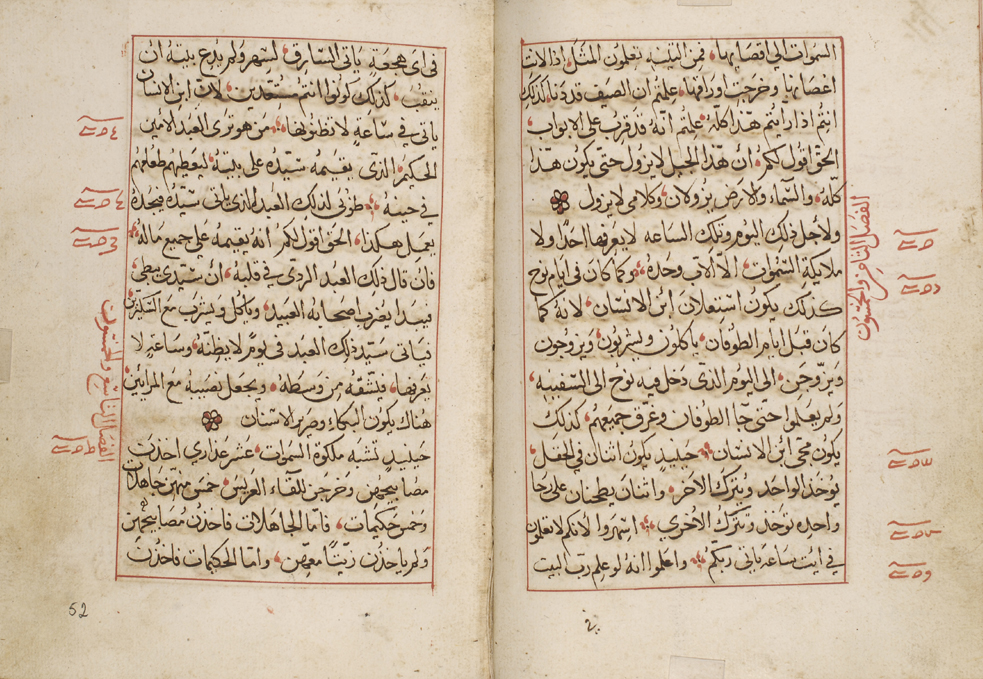 السموات الي اقصايها فمن التينه تعلمون المثل اذا لانت
اغصانها وخرجت اوراقها علمتم ان الصيف قد دنا كذلك
انتم اذا رايتم هذا كله علمتم انه قد قرب علي الابواب
الحق اقول لكم ان هذا الجيل لا يزول حتي يكون هذا
كله والسماء والارض يزولان وكلامي لا يزول
الفصل الثامن والخمسون
ولاجل ذلك اليوم وتلك الساعه لا يعرفها احد ولا
ملايكة السموات الا الاب وحده وكما كان في ايام نوح
كذلك يكون استعلان ابن الانسان لانه كما
كان قبل ايام الطوفان ياكلون ويشربون ويزوجون
ويزوجن الي اليوم الذي دخل فيه نوح الي السفينه
ولم يعلموا حتي جا الطوفان وغرق جميعهم كذلك
يكون مجي ابن الانسان حينيد يكون اثنان في الحقل
يوخذ الواحد ويترك الاخر واثنان يطحنان علي رحا
واحده توخذ وتترك الاخري اسهروا لانكم لا تعلمون
في ايت ساعه ياتي ربكم واعلموا انه لو علم رب البيت
في اي هجعة ياتي السارق لسهر ولم يدع بيته ان
ينقب كذلك كونوا انتم مستعدين لان ابن الانسان
ياتي في ساعة لا تظنونها من هو تري العبد الامين
الحكيم الذي يقيمه سيده علي بيته ليعطيهم طعامهم
في حينه طوبي لذلك العبد الذي ياتي سيده فيجده
يعمل هكذا الحق اقول لكم انه يقيمه علي جميع ماله
فان قال ذلك العبد الردي في قلبه ان سيدي يبطي
فيبدا يضرب اصحابه العبيد وياكل ويشرب مع السكيرين
فياتي سيد ذلك العبد في يوم لا يظنه وساعة لا
يعرفها فيشقه من وسطه ويجعل نصيبه مع المرايين
هناك يكون البكاء وصرير الاسنان
الفصل التاسع والخمسون
حينيد تشبه ملكوة السموات عشر عذاري اخذت
مصابيحهن وخرجن للقاء العريس خمس منهن جاهلات
وخمس حكيمات فاما الجاهلات فاخذن مصابيحهن
ولم ياخذن زيتا معهن واما الحكيمات فاخذت
52